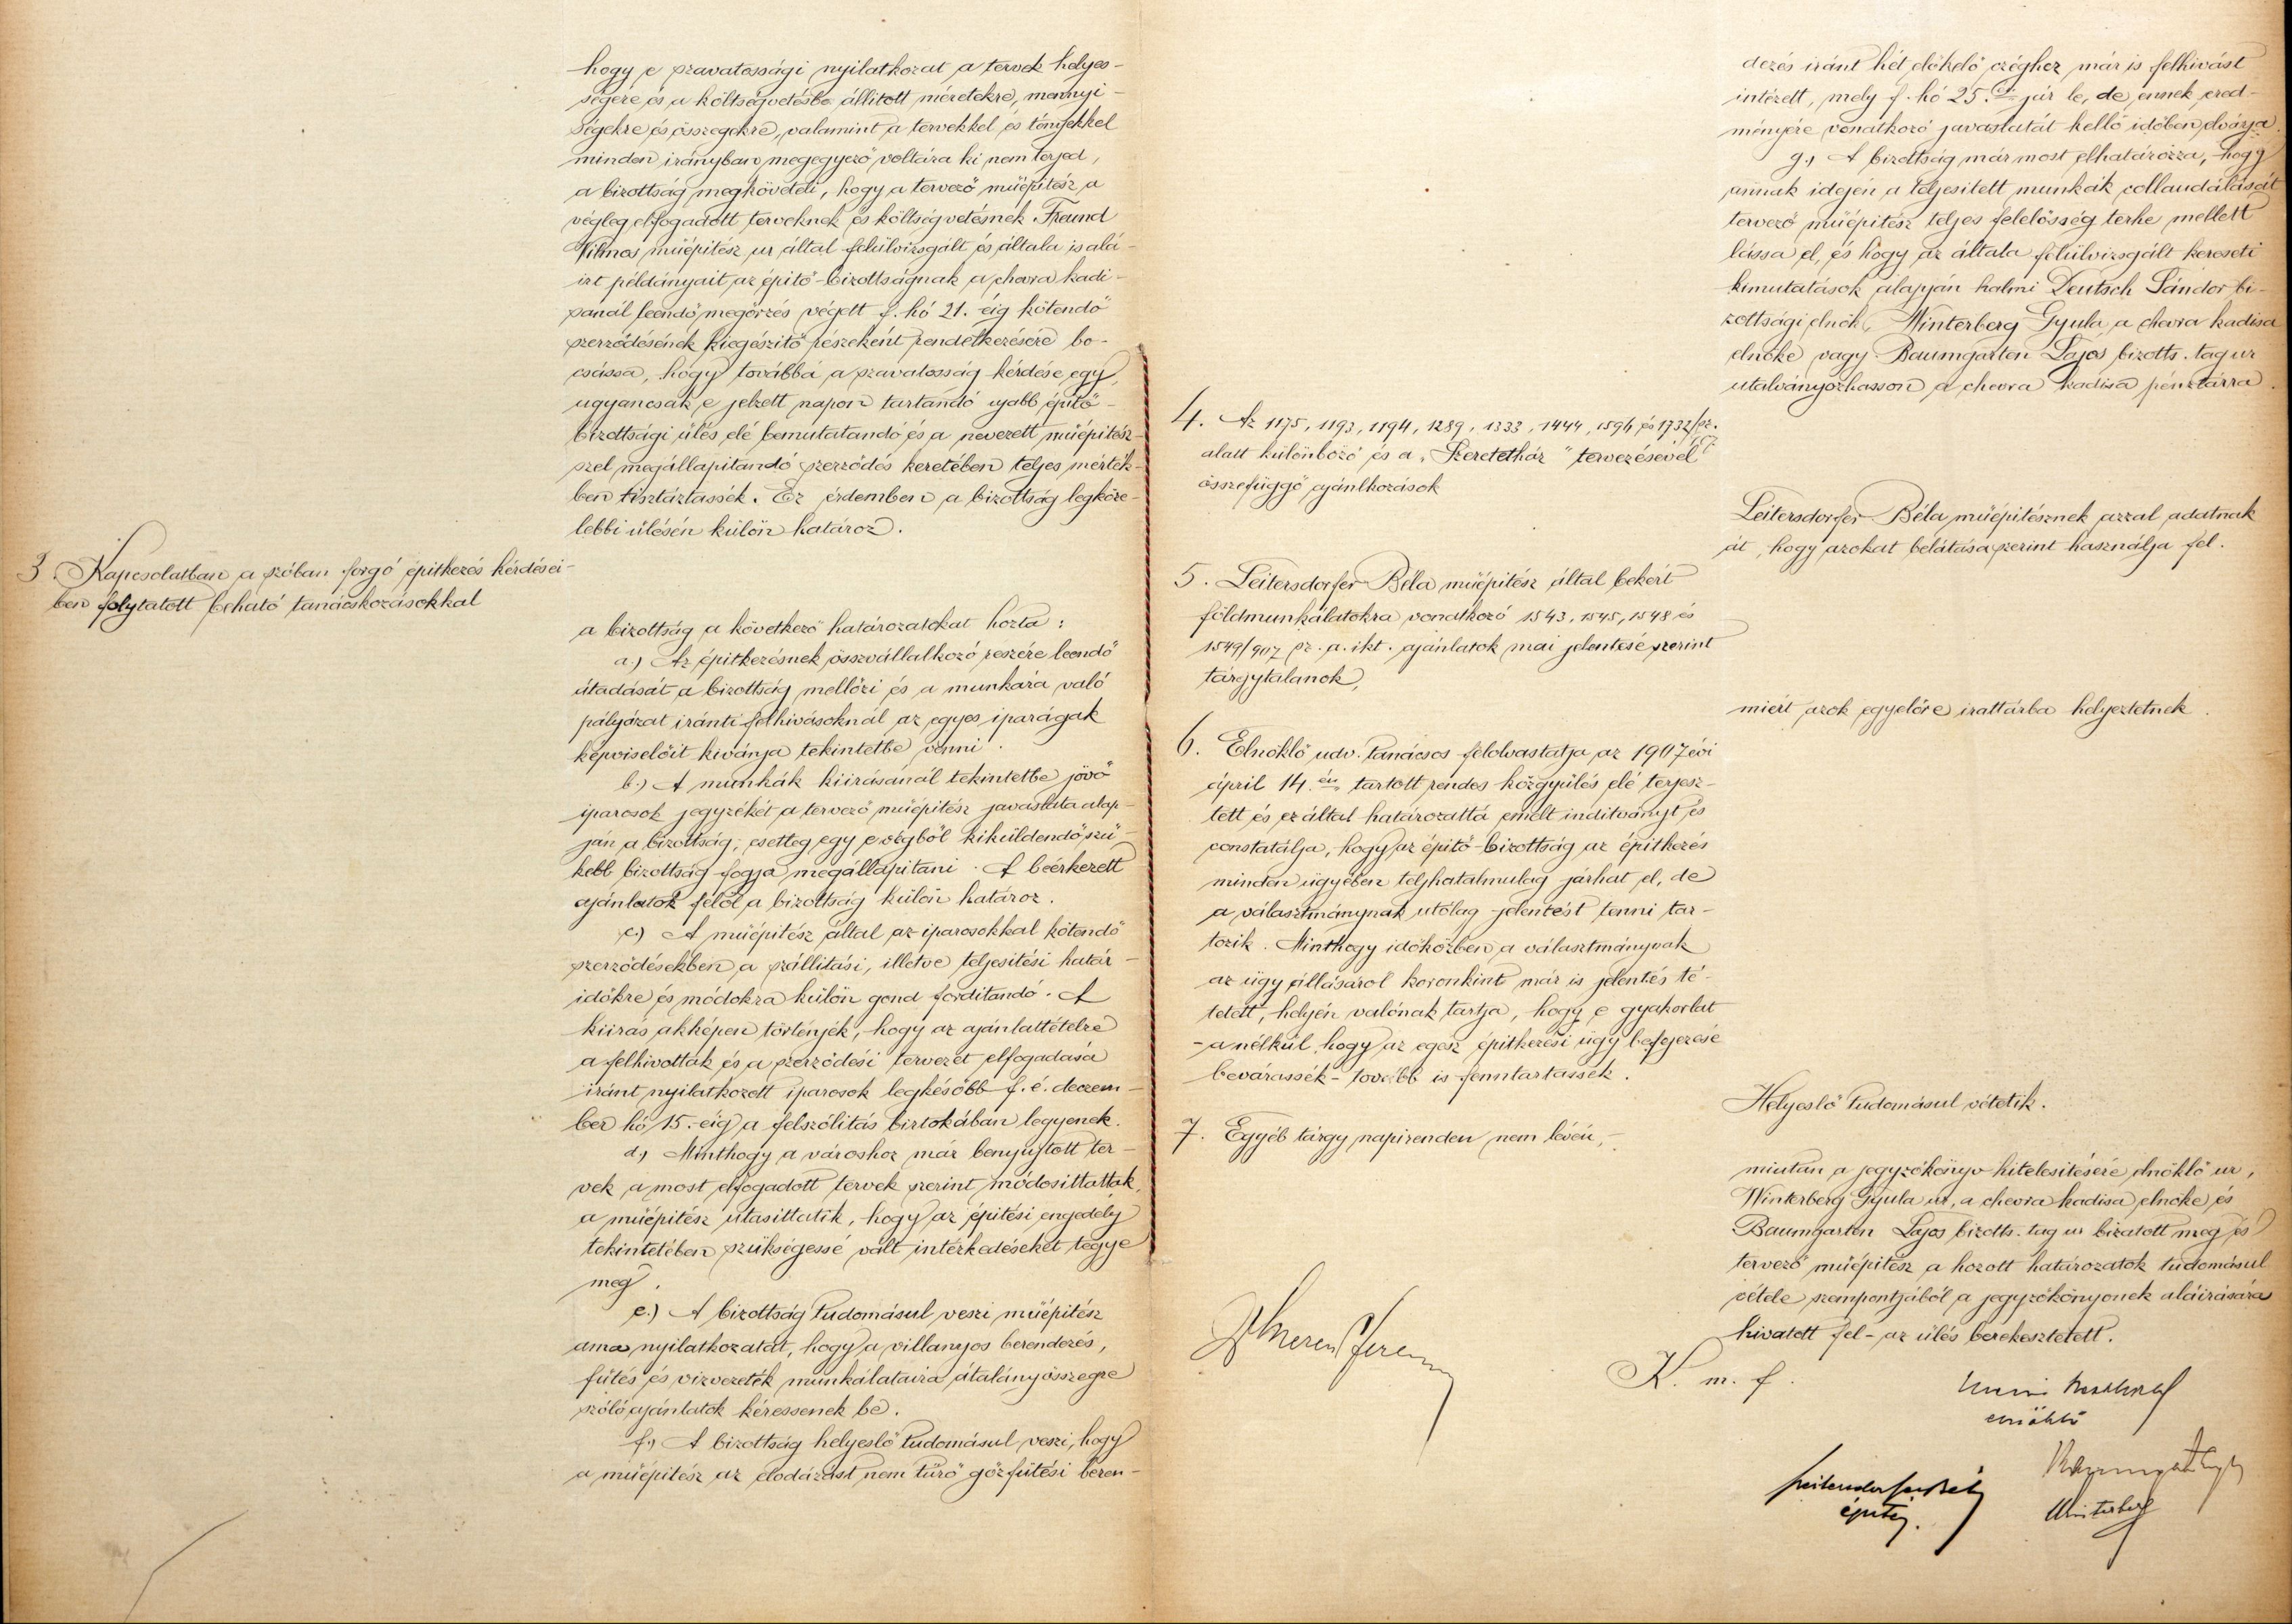 hogy e szavatossági nyilatkozat a tervek helyes-
ségére és a költségvetésbe állított méretekre, mennyi-
ségekre és összegekre, valamint a tervekkel és tényekkel
minden irányban megegyező voltára ki nem terjed,
a bizottság megköveteli, hogy a tervező műépitész a
végleg elfogadott terveknek és költségvetésnek Freund
Vilmos műépitész ur által felülvizsgált és általa is alá-
irt példányait az épitő-bizottságnak a chevra kadi-
sánál leendő megőrzés végett f. hó 21.-éig kötendő
szerződésének kiegészitő részeként rendelkezésére bo-
csássa, hogy továbbá a szavatosság kérdése egy,
ugyancsak e jelzett napon tartandó ujabb épitő-
bizottsági ülés elé bemutatandó és a nevezett műépitész-
szel megállapitandó szerződés keretében teljes mérték-
ben tisztáztassék. Ez érdemben a bizottság legköze-
lebbi ülésén külön határoz.
3. Kapcsolatban a szóban forgó épitkezés kérdései-
ben folytatott beható tanácskozásokkal
a bizottság a következő határozatokat hozta:
a.) Az épitkezésnek összvállalkozó részére leendő
átadását a bizottság mellőzi és a munkára való
pályázat iránti felhivásoknál az egyes iparágak
képviselőit kivánja tekintetbe venni.
b.) A munkák kiirásánál tekintetbe jövő
iparosok jegyzékét a tervező műépitész javaslata alap-
ján a bizottság, esetleg egy e végből kiküldendő szü-
kebb bizottság fogja megállapitani. A beérkezett
ajánlatok felől a bizottság külön határoz.
c.) A műépitész által az iparosokkal kötendő
szerződésekben a szállitási, illetve teljesitési határ-
időkre és módokra külön gond forditandó. A
kiirás akképen történjék, hogy az ajánlattételre
a felhivottak és a szerződési tervezet elfogadása
iránt nyilatkozott iparosok legkésőbb f. é. decem-
ber hó 15.-éig a felszólitás birtokában legyenek.
d.) Minthogy a városhoz már benyujtott ter-
vek a most elfogadott tervek szerint módosittattak,
a műépitész utasittatik, hogy az épitési engedély
tekintetében szükségessé vált intézkedéseket tegye
meg.
e.) A bizottság tudomásul veszi műépitész
ama nyilatkozatát, hogy a villanyos berendezés,
fűtés és vizvezeték munkálataira átalányösszegre
szóló ajánlatok kéressenek be.
f.) A bizottság helyeslő tudomásul veszi, hogy
a műépitész az elodázást nem tűrő gőzfűtési beren-
dezés iránt hét előkelő czéghez már is felhivást
intézett, mely f. hó 25.-én jár le, de ennek ered-
ményére vonatkozó javaslatát kellő időben elvárja.
g.) A bizottság már most elhatározza, hogy
annak idején a teljesitett munkák collaudálását
tervező műépitész teljes felelősség terhe mellett
lássa el, és hogy az általa felülvizsgált kereseti
kimutatások alapján halmi Deutsch Sándor bi-
zottsági elnök, Winterberg Gyula a chevra kadisa
elnöke vagy Baumgarten Lajos bizotts. tag ur
utalványozhasson a chevra kadisa pénztárra.
4. Az 1175, 1193, 1194, 1289, 1333, 1444, 1594 és 1732/sz.
alatt különböző és a „Szeretetház” tervezésével
összefüggő ajánlkozások
Leitersdorfer Béla műépitésznek azzal adatnak
át, hogy azokat belátása szerint használja fel.
5. Leitersdorfer Béla műépitész által bekért
földmunkálatokra vonatkozó 1543, 1545, 1548 és
1549/907 sz. a. ikt. ajánlatok mai jelentése szerint
tárgytalanok,
miért azok egyelőre irattárba helyeztetnek.
6. Elnöklő udv. tanácsos felolvastatja az 1907 évi
ápril 14.én tartott rendes közgyülés elé terjesz-
tett és ez által határozattá emelt inditványt és
constatálja, hogy az épitő-bizottság az épitkezés
minden ügyében teljhatalmulag járhat el, de
a választmánynak utólag jelentést tenni tar-
tozik. Minthogy időközben a választmánynak
az ügy állásáról koronkint már is jelentés té-
tetett, helyén valónak tartja, hogy e gyakorlat
- a nélkül, hogy az egész épitkezési ügy befejezése
bevárassék - tovább is fenntartassék.
Helyeslő tudomásul vétetik.
7. Egyéb tárgy napirenden nem lévén,-
miután a jegyzőkönyv hitelesitésére elnöklő ur,
Winterberg Gyula ur, a chevra kadisa elnöke és
Baumgarten Lajos bizotts. tag ur bizatott meg és
tervező műépitész a hozott határozatok tudomásul
vétele szempontjából a jegyzőkönyvnek aláirására
hivatott fel - az ülés berekesztetett.
K. m. f.
elnöklő
Leitersdorfer Béla
épitész.
Winterberg